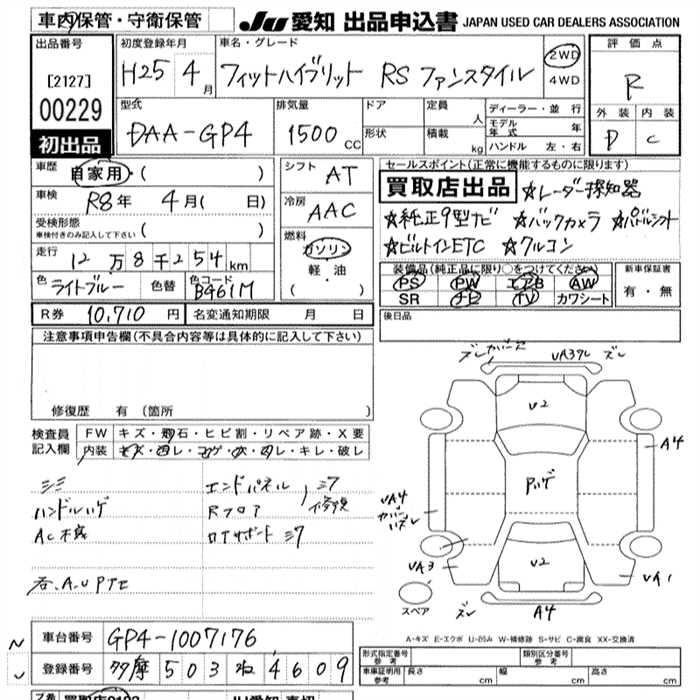 車内保管・守衛保管 JU 愛知 出品申込書 JAPAN USED CAR DEALERS ASSOCIATION
出品番号 初度登録年月 車名・グレード 評価点
[2127] H25年 4月 フィットハイブリット RS ファンスタイル 2WD 4WD R
00229 型式 排気量 ドア 定員 人 ディーラー・並行 外装 内装
初出品 DAA-GP4 1500cc 形状 積載 kg モデル年式 年 ハンドル 左・右 D C
車歴 自家用・( ) シフト AT セールスポイント(正常に機能するものに限ります)
車検 R8年 4月( 日) 冷房 AAC 買取店出品 ☆レーダー探知器
受検形態 ( ) ☆純正9型ナビ ☆バックカメラ ☆パドルシフト
車検付きのみ記入して下さい 燃料 ガソリン・軽油・( ) ☆ビルトインETC ☆クルコン
走行 12万8千254km 装備品(純正品に限り○をつけてください) 新車保証書
色 ライトブルー 色替 色コード B461M PS PW エアB AW 有・無
SR ナビ TV カワシート
R券 10,710円 名変通知期限 月 日 後日品
注意事項申告欄(不具合内容等は具体的に記入して下さい)
修復歴 有 (箇所 )
検査員記入欄 FW キズ・飛石・ヒビ割・リペア跡・X要
内装 キズ・汚レ・コゲ・穴・凹レ・キレ・破レ
シミ エンドパネル シワ
ハンドルハゲ Rフロア 修復
AC不良 ロアサポート シワ
UA39L ズレ
U2
A4
Pハゲ
UA4
カバーハズレ
UA3 U2 UA1
スペア ズレ A4
A-キズ E-エクボ U-凹み W-補修跡 S-サビ C-腐食 XX-交換済
車台番号 GP4-1007176 形式指定番号 参考 類別区分番号 参考
登録番号 多摩 503 ね 4609 車庫証明用 参考 長さ cm 幅 cm 高さ cm